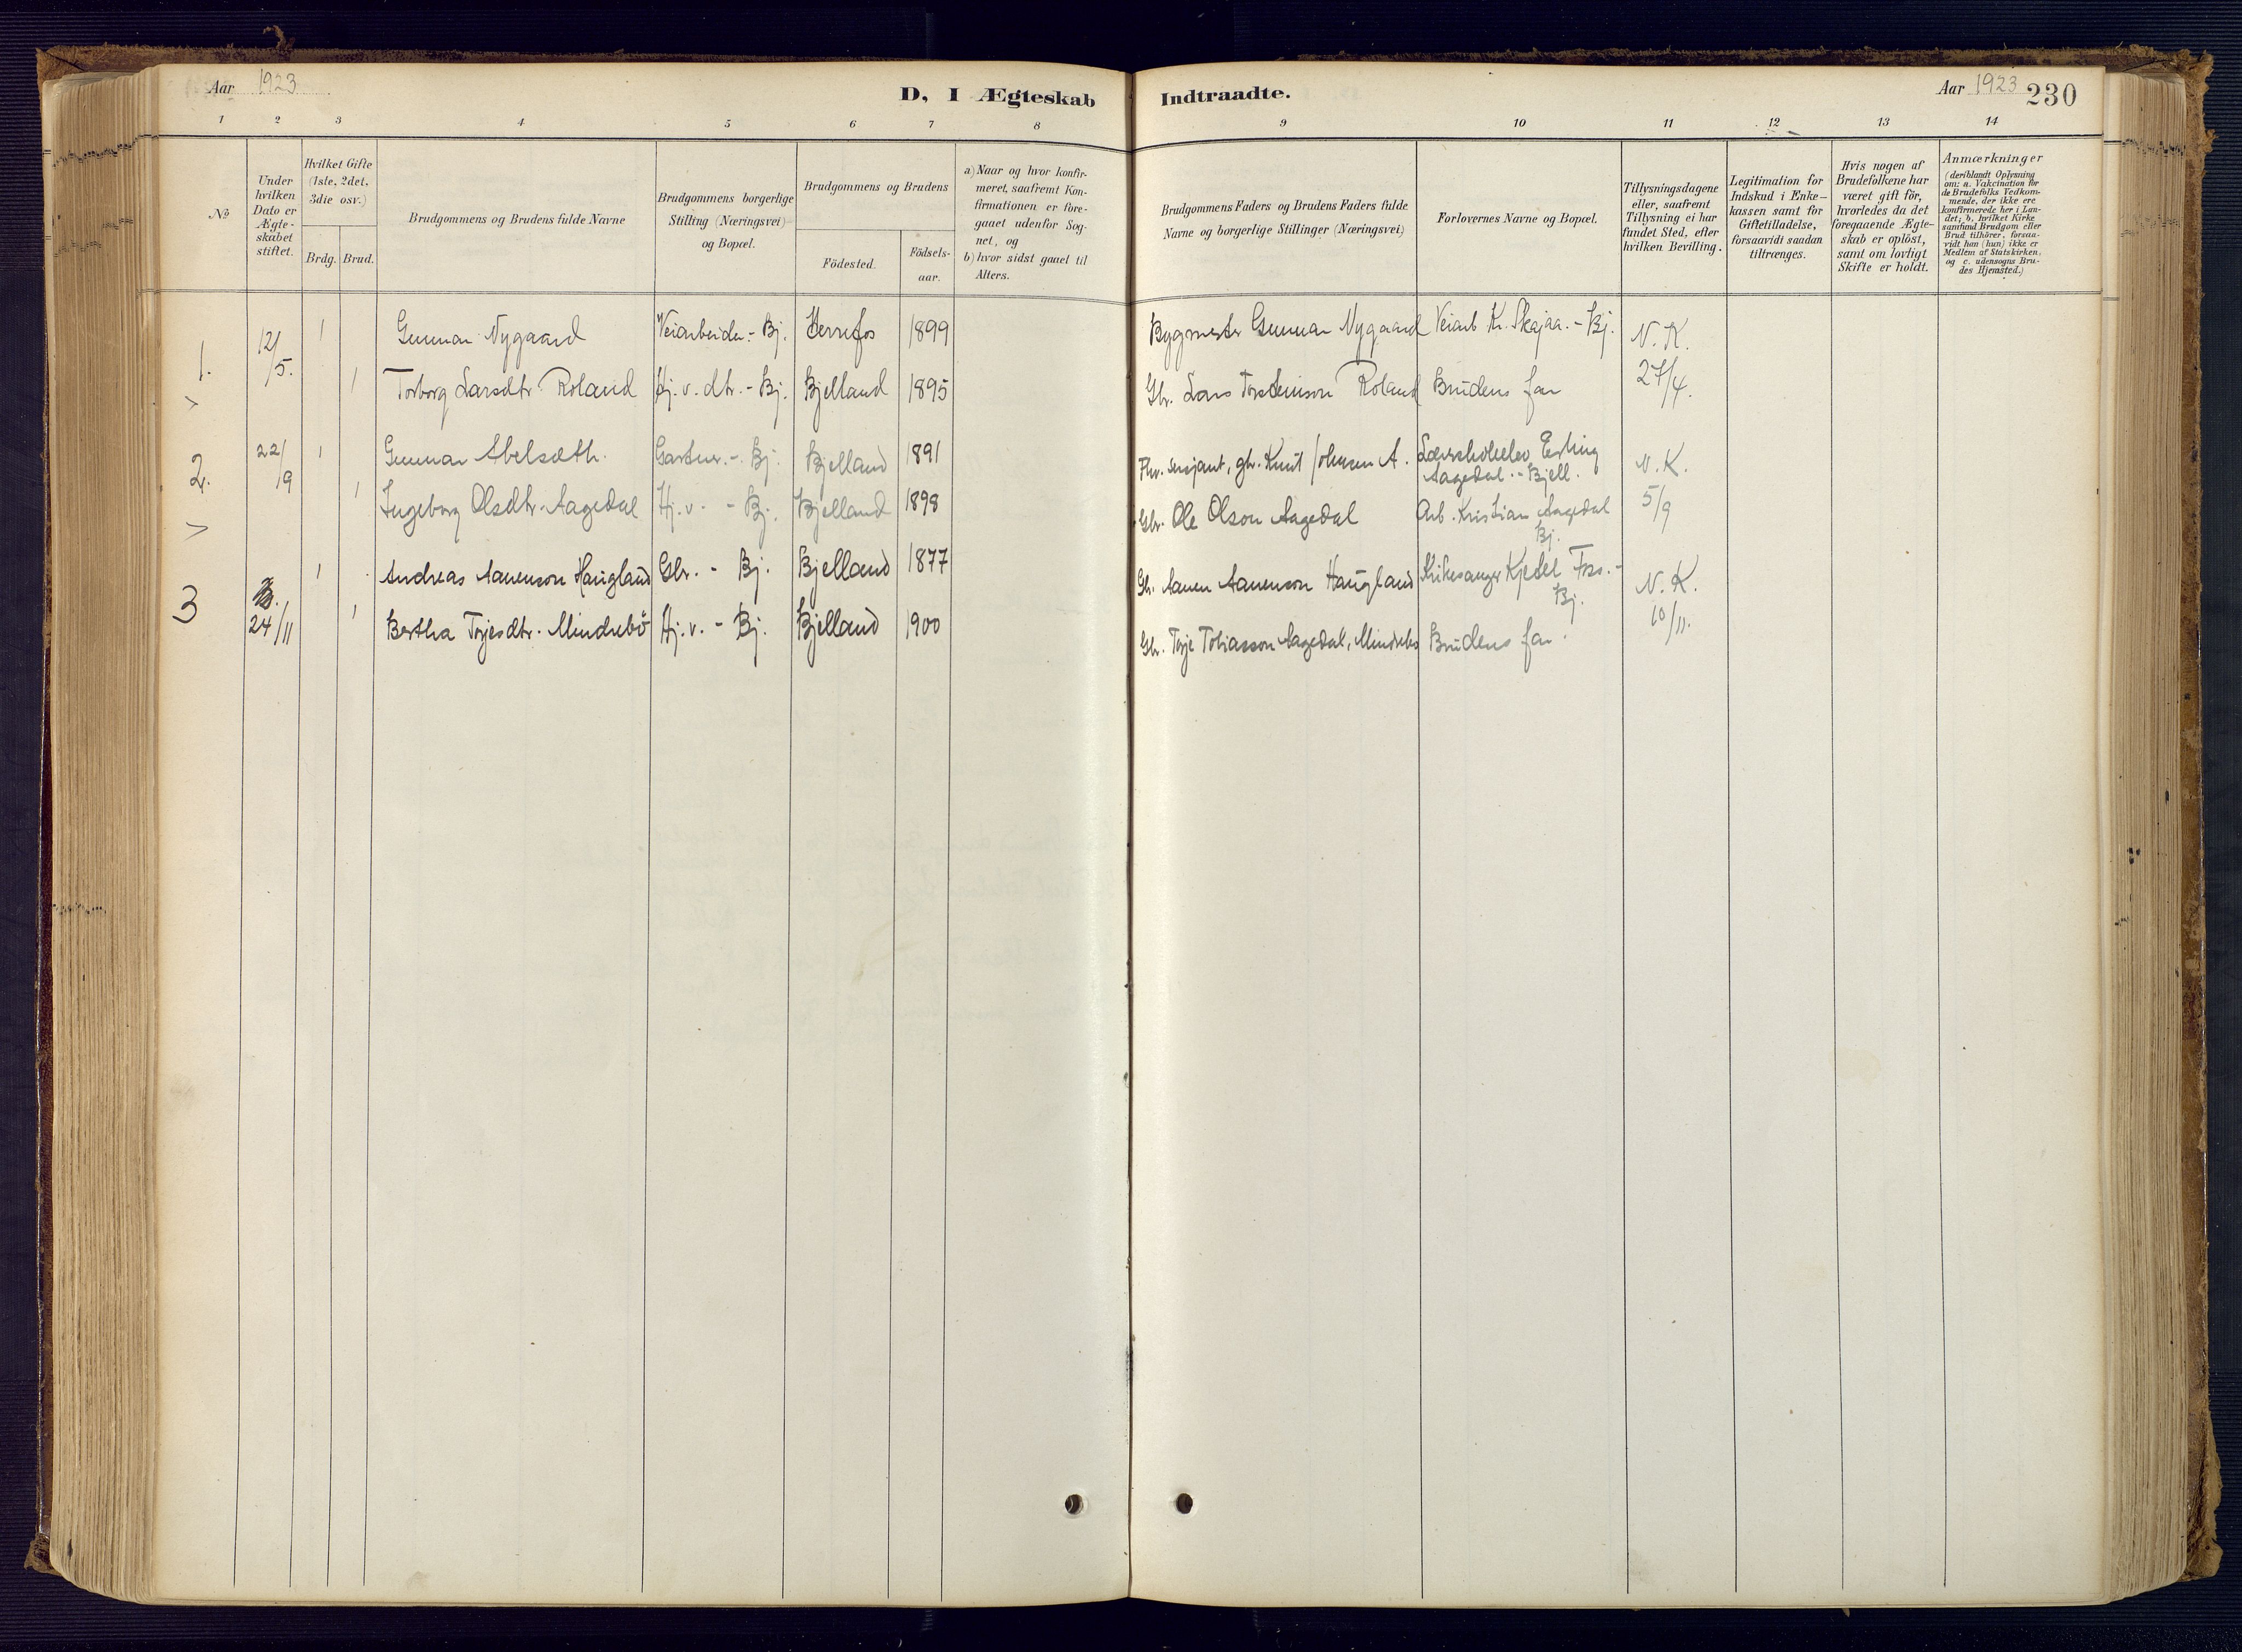 Aar 1923
D, I Ægteskab Indtraadte.
Aar 1923 230
1 2 3 4 5 6 7 8 9 10 11 12 13 14
No
Under
hvilken
Dato er
Ægte-
skabet
stiftet.
Hvilket Gifte
(1ste, 2det,
3die osv.)
Brdg. Brud.
Brudgommens og Brudens fulde Navne
Brudgommens borgerlige
Stilling (Næringsvei)
og Bopæl.
Brudgommens og Brudens
Födested.
Födsels-
aar.
a) Naar og hvor konfir-
meret, saafremt Kon-
firmationen er fore-
gaaet udenfor Sog-
net, og
b) hvor sidst gaaet til
Alters.
Brudgommens Faders og Brudens Faders fulde
Navne og borgerlige Stillinger (Næringsvei)
Forlovernes Navne og Bopæl.
Tillysningsdagene
eller, saafremt
Tillysning ei har
fundet Sted, efter
hvilken Bevilling.
Legitimation for
Indskud i Enke-
kassen samt for
Giftetilladelse,
forsaavidt saadan
tiltrænges.
Hvis nogen af
Brudefolkene har
været gift för,
hvorledes da det
foregaaende Ægte-
skab er oplöst,
samt om lovligt
Skifte er holdt.
Anmærkninger
(deriblandt Oplysning
om: a. Vakcination for
de Brudefolks Vedkom-
mende, der ikke ere
konfirmerede her i Lan-
det; b. hvilket Kirke
samfund Brudgom eller
Brud tilhörer, forsaa-
vidt han (hun) ikke er
Medlem af Statskirken,
og c. udensogns Bru-
des Hjemsted.)
1. 12/5. 1 Gunnar Nygaard Veiarbeider.- Bj. Herrefos 1899 Bygmester Gunnar Nygaard Veiarb. Kr. Skajaa.- Bj. N.K.
1 Torborg Larsdtr. Roland Hj.v. dtr.- Bj. Bjelland 1895 Gbr. Lars Torsteinson Roland Brudens far 27/4.
2. 22/9 1 Gunnar Abelsæth. Gartner.- Bj. Bjelland 1891 Fhv. sersjant, gbr. Knut Johnsen A. Lærerskoleelev Erling
Aagedal.- Bjell. N.K.
1 Ingeborg Olsdtr. Aagedal Hj.v. - Bj. Bjelland 1898 Gbr. Ole Olson Aagedal Arb. Kristian Aagedal
Bj. 5/9
3 24/11 1 Andreas Aanenson Haugland Gbr. - Bj. Bjelland 1877 Gbr. Aanen Aanenson Haugland Kirkesanger Kjedel Foss.-
Bj. N.K.
1 Bertha Terjesdtr. Mindrebö Hj.v. - Bj. Bjelland 1900 Gbr. Terje Tobiasson Aagedal, Mindrebö Brudens far. 10/11.